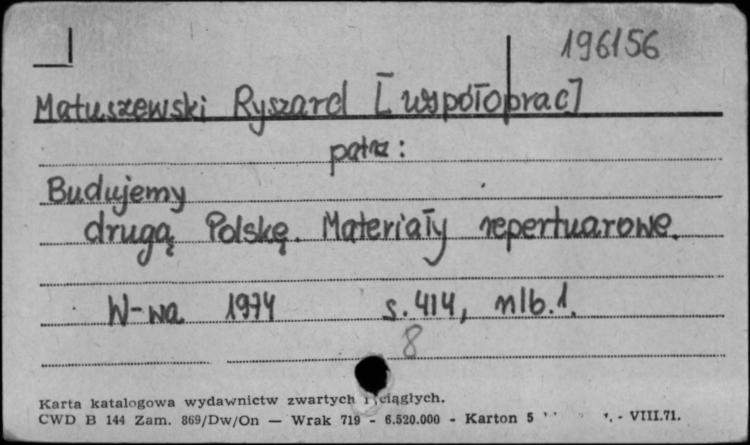 196156
Matuszewski Ryszard [współoprac]
patrz:
Budujemy
drugą Polskę. Materiały repertuarowe.
W-wa 1974 s. 414, nlb. 1.
8
Karta katalogowa wydawnictw zwartych i ciągłych.
CWD B 144 Zam. 869/Dw/On — Wrak 719 - 6.520.000 - Karton 5 - VIII.71.